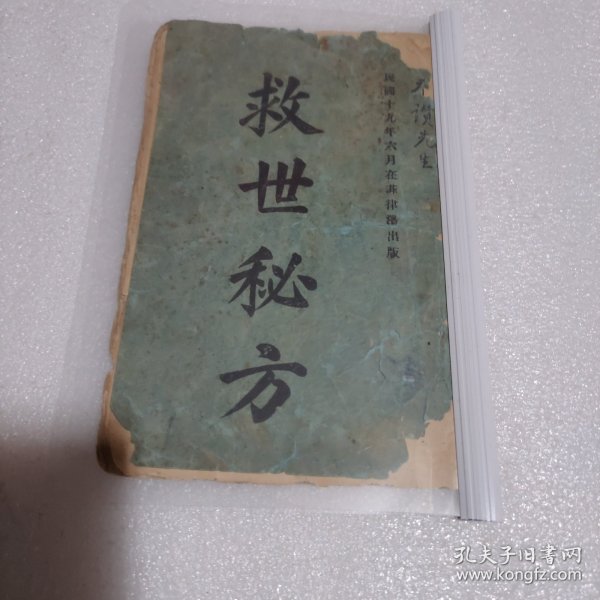 民國十九年六月在菲律濱出版
救世秘方
先生
孔夫子旧書网
www.kongfz.com